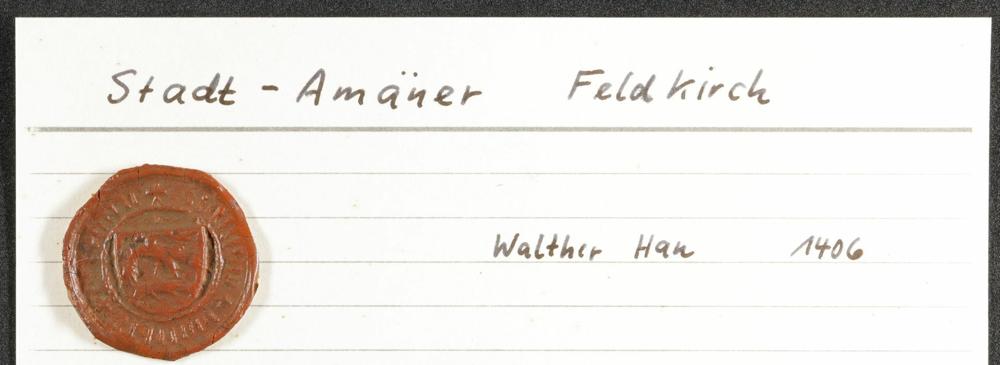 Stadt - Amäner Feldkirch
Walther Han 1406